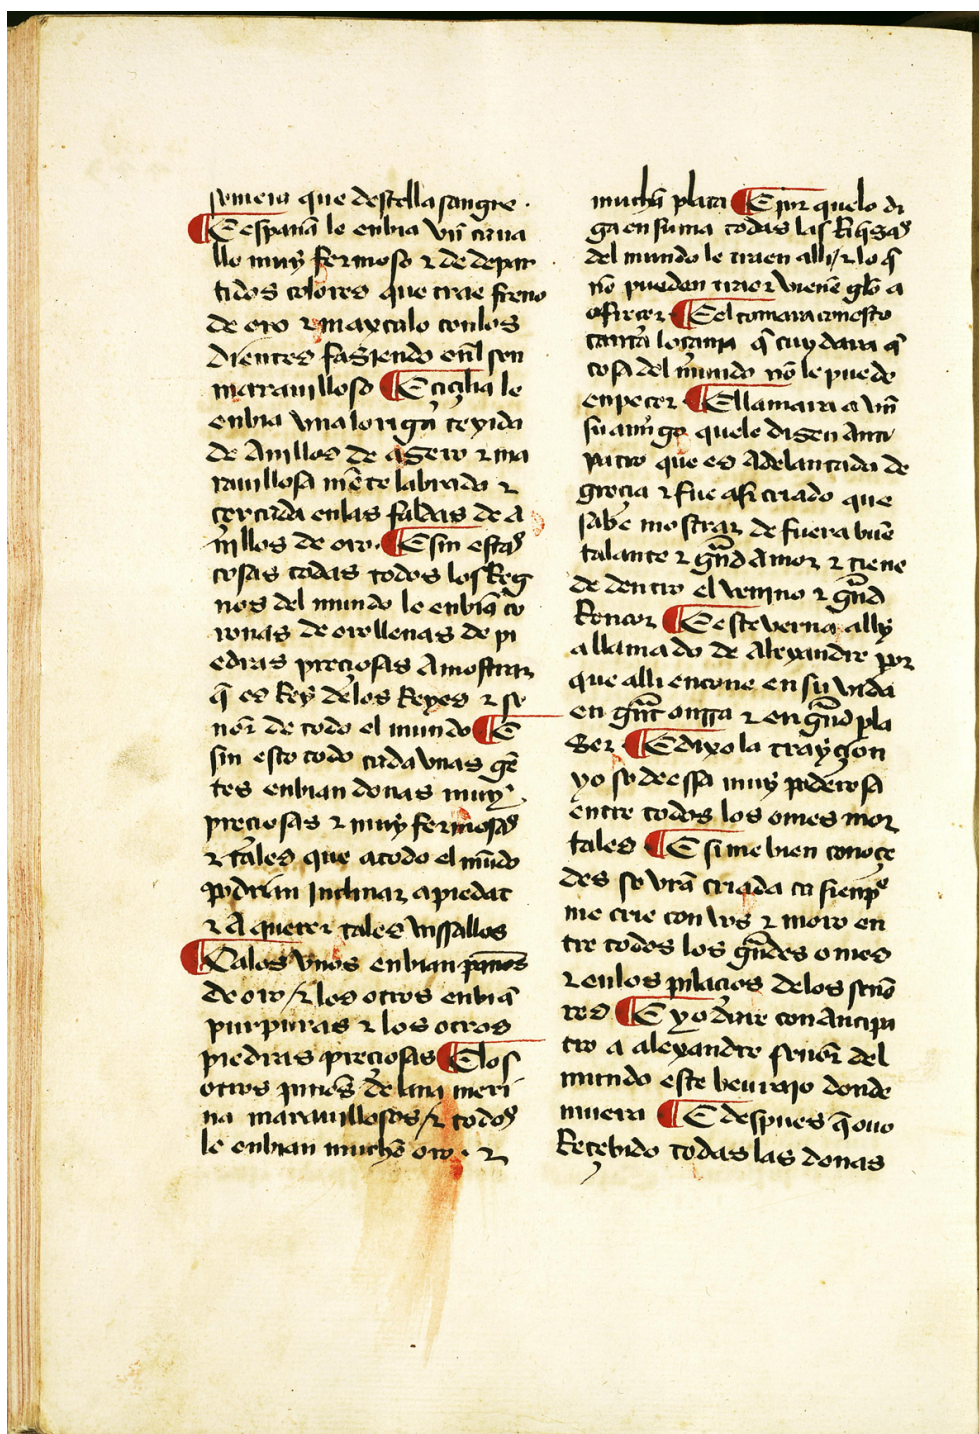 semeia que destella sangre ·
¶ E espanã le enbia vn̄ caua
llo muy fermoso ⁊ de depar
tidos colores que trae freno
de oro ⁊ maxcalo con los
dientes fasiendo enl̄ son
marauilloso ¶ E ciçilia le
enbia vna loriga texida
de Anillos de asero ⁊ ma
rauillosa mēte labrada ⁊
cercada en las faldas de a
nillos de oro · ¶ E sin estas
cosas todas todos los Reg
nos del mundo le enbiā co
ronas de oro llenas de pi
edras preciosas A mostrar
q̄ es Rey de los Reyes ⁊ se
nor̄ de todo el mundo ¶ E
sin esto todo cada vnas gē
tes enbian donas muy
preciosas ⁊ muy fermosas
⁊ tales que a todo el mūdo
podrian Inclinar a piedat
⁊ A querer tales vassallos
¶ E a los vnos enbian panos
de oro / ⁊ los otros enbiā
purpuras ⁊ los otros
piedras preciosas ¶ E los
otros panos de lana meri
na marauillosos / ⁊ todos
le enbian mucho oro · ⁊
mucha plata ¶ E por quelo di
ga en suma todas las Riq̄sas
del mundo le traen alli / ⁊ lo q̄
nō pueden traer vienē gelo a
ofrecer ¶ E el tomara con esto
tanta loçania q̄ cuydara q̄
cosa del mundo nō le puede
enpecer ¶ E llamara a vn̄
su amigo quele disen Anti
patro que es Adelantado de
grecia ⁊ fue asi criado que
sabe mostrar de fuera buē
talante ⁊ gn̄d Amor ⁊ tiene
de dentro el venino ⁊ gn̄d
Rencor ¶ E este verna ally
a llamado de Alexandre por
que alli encone en su vida
en gn̄t onrra ⁊ en gn̄d pla
ser ¶ E dixo la trayçon
yo so deessa muy poderosa
entre todos los omes mor
tales ¶ E si me bien conoçe
des so vrā criada ca sienpre
me crie con vos ⁊ moro en
tre todos los gn̄des omes
⁊ en los palacios delos seno
res ¶ E yo dare con Antipa
tro a alexandre senor del
mundo este beuraio donde
muera ¶ E despues q̄ ouo
Recebido todas las donas